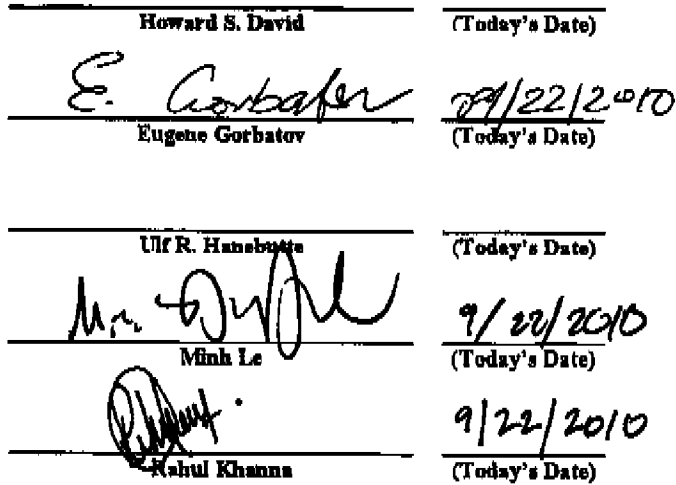 Howard S. David (Today's Date)
E. Gorbatov 09/22/2010
Eugene Gorbatov (Today's Date)
Ulf R. Hanebutte (Today's Date)
9/22/2010
Minh Le (Today's Date)
9/22/2010
Rahul Khanna (Today's Date)